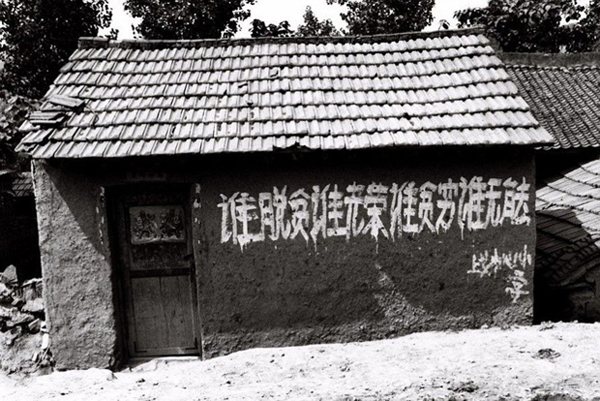 谁脱贫谁光荣谁贫穷谁无能